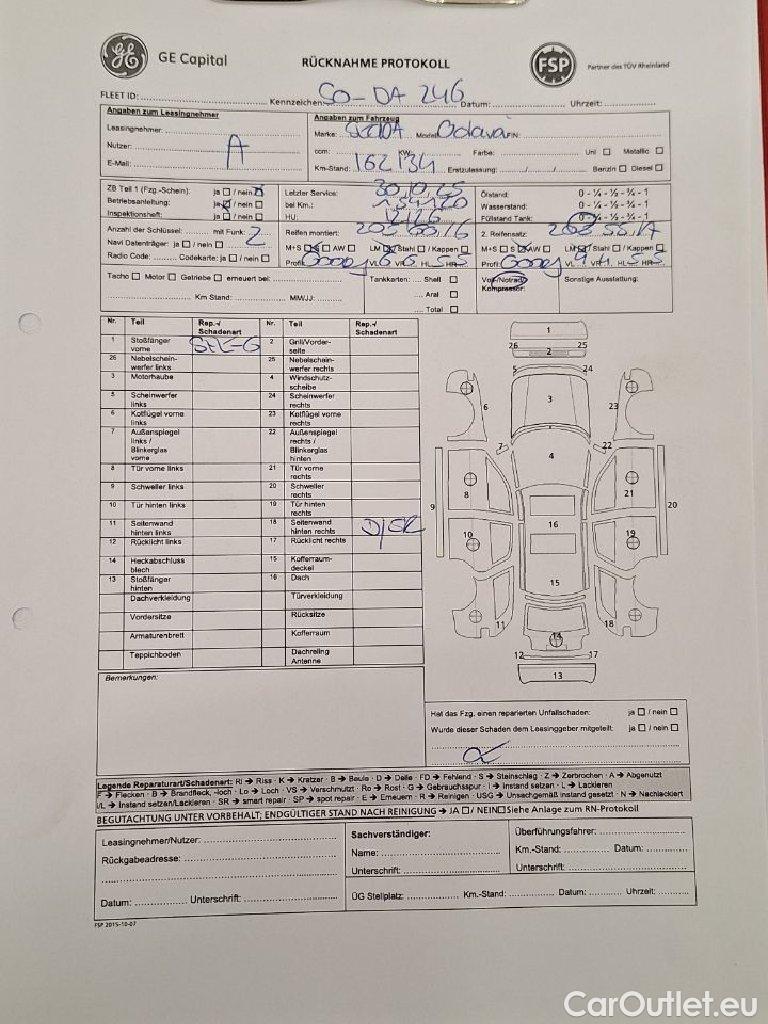 GE Capital
RÜCKNAHME PROTOKOLL
FSP
Partner des TÜV Rheinland
FLEET ID: Kennzeichen: SO-DA 246 Datum: Uhrzeit:
Angaben zum Leasingnehmer
Leasingnehmer:
Nutzer:
E-Mail:
A
Angaben zum Fahrzeug
Marke: SKODA Modell: Octavia FIN:
ccm: KW: Farbe: Uni Metallic
Km-Stand: 162134 Erstzulassung: / / Benzin Diesel
ZB Teil 1 (Fzg.-Schein): ja / nein
Betriebsanleitung: ja / nein
Inspektionsheft: ja / nein
Letzter Service: 30.10.25
bei Km.:
HU: 12/26
Ölstand: 0 - ¼ - ½ - ¾ - 1
Wasserstand: 0 - ¼ - ½ - ¾ - 1
Füllstand Tank: 0 - ¼ - ½ - ¾ - 1
Anzahl der Schlüssel: mit Funk: 2
Navi Datenträger: ja / nein
Radio Code: Codekarte: ja / nein
Reifen montiert: 205 60 16
M+S S AW LM Stahl / Kappen
Profil: Goody VL 6 VR 6 HL 5 HR 5
2. Reifensatz: 205 55 17
M+S S AW LM Stahl / Kappen
Profil: Goody VL 4 VR 4 HL 5 HR 5
Tacho Motor Getriebe erneuert bei:
Km Stand: MM/JJ:
Tankkarten: Shell
Aral
Total
Vers/Notrad/
Kompressor:
Sonstige Ausstattung:
Nr. Teil Rep.-/ Schadenart Nr. Teil Rep.-/ Schadenart
1 Stoßfänger vorne 2 Grill/Vorderseite
26 Nebelscheinwerfer links 25 Nebelscheinwerfer rechts
3 Motorhaube 4 Windschutzscheibe
5 Scheinwerfer links 24 Scheinwerfer rechts
6 Kotflügel vorne links 23 Kotflügel vorne rechts
7 Außenspiegel links / Blinkerglas vorne 22 Außenspiegel rechts / Blinkerglas hinten
8 Tür vorne links 21 Tür vorne rechts
9 Schweller links 20 Schweller rechts
10 Tür hinten links 19 Tür hinten rechts
11 Seitenwand hinten links 18 Seitenwand hinten rechts D/SR
12 Rücklicht links 17 Rücklicht rechts
14 Heckabschlussblech 15 Kofferraumdeckel
13 Stoßfänger hinten 16 Dach
Dachverkleidung Türverkleidung
Vordersitze Rücksitze
Armaturenbrett Kofferraum
Teppichboden Dachreling Antenne
1
26 2 25
5 24
6 3 23
7 4 22
8 21
9 20
10 16 19
15
11 14 18
12 17
13
Bemerkungen:
Hat das Fzg. einen reparierten Unfallschaden: ja / nein
Wurde dieser Schaden dem Leasinggeber mitgeteilt: ja / nein
Legende Reparaturart/Schadenart: RI → Riss · K → Kratzer · B → Beule · D → Delle · FD → Fehlend · S → Steinschlag · Z → Zerbrochen · A → Abgenutzt
F → Flecken · B → Brandfleck, -loch · Lo → Loch · VS → Verschmutzt · Ro → Rost · G → Gebrauchsspur · I → Instand setzen · L → Lackieren
I/L → Instand setzen/Lackieren · SR → smart repair · SP → spot repair · E → Erneuern · R → Reinigen · USG → Unsachgemäß instand gesetzt · N → Nachlackiert
BEGUTACHTUNG UNTER VORBEHALT; ENDGÜLTIGER STAND NACH REINIGUNG → JA / NEIN Siehe Anlage zum RN-Protokoll
Leasingnehmer/Nutzer:
Rückgabeadresse:
Datum: Unterschrift:
Sachverständiger:
Name:
Unterschrift:
Überführungsfahrer:
Km.-Stand: Datum:
Unterschrift:
ÜG Stellplatz: Km.-Stand: Datum: Uhrzeit:
FSP 2015-10-07
CarOutlet.eu